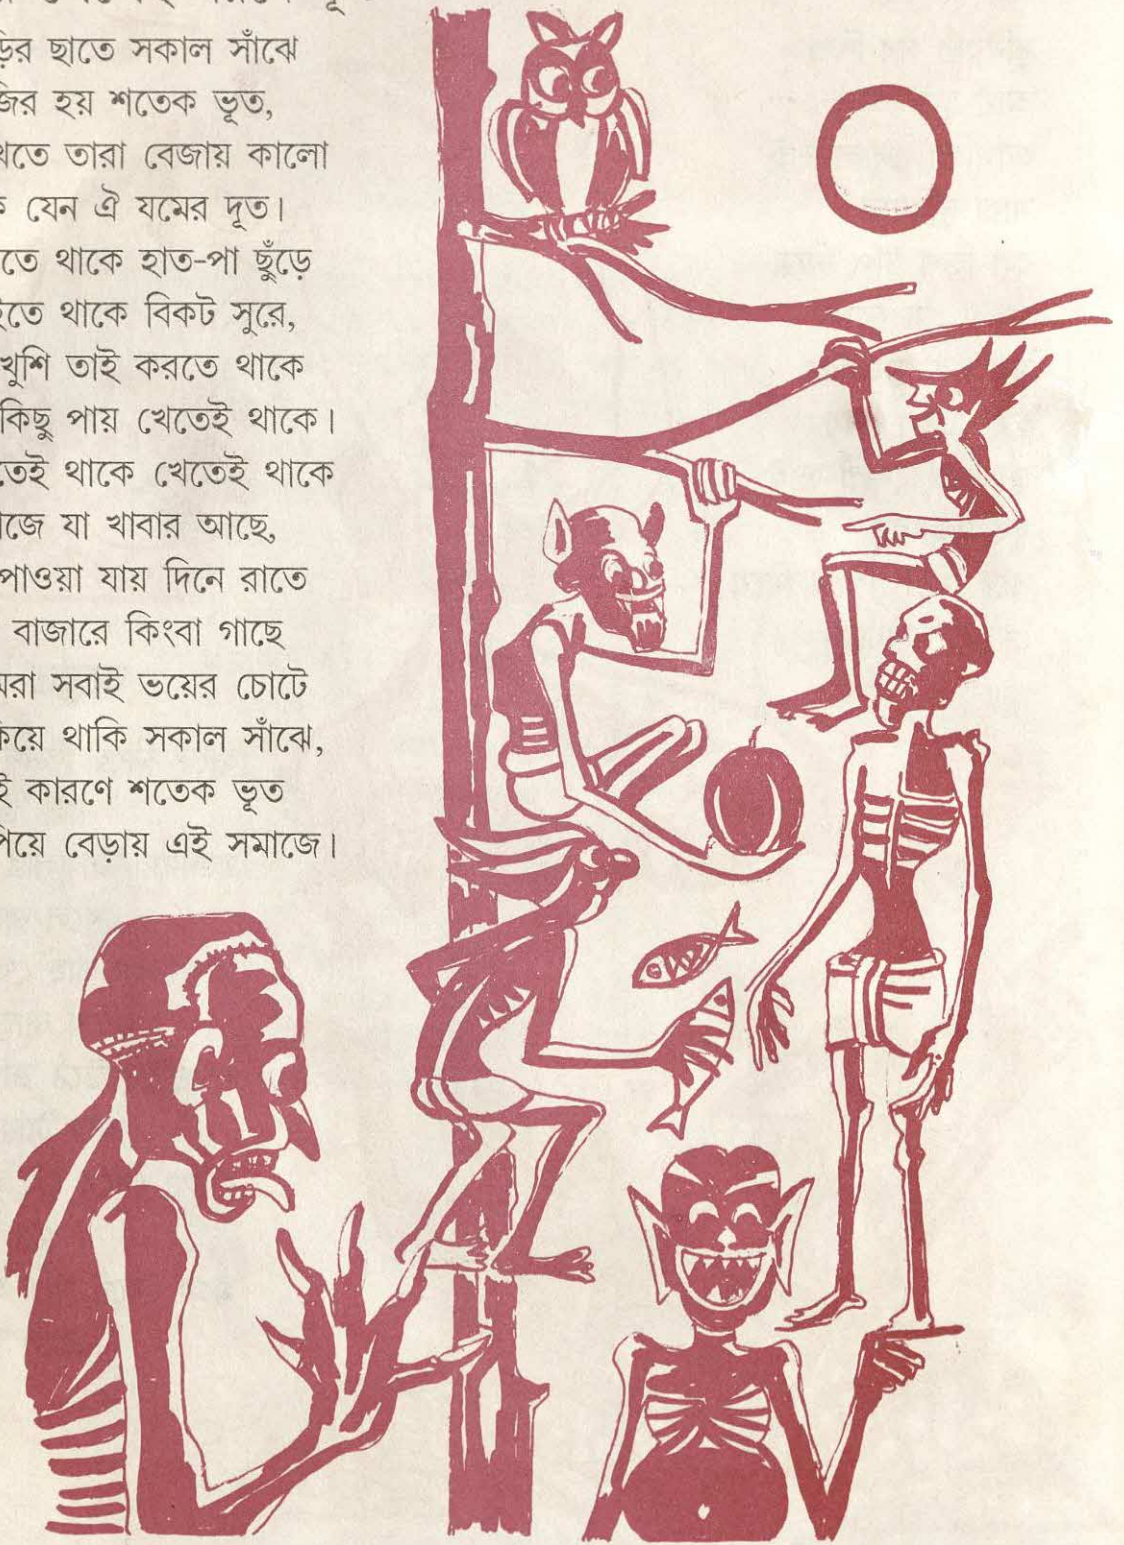 ড়ির ছাতে সকাল সাঁঝে
জির হয় শতেক ভূত,
খতে তারা বেজায় কালো
ক যেন ঐ যমের দূত।
তে থাকে হাত-পা ছুঁড়ে
ইতে থাকে বিকট সুরে,
খুশি তাই করতে থাকে
কিছু পায় খেতেই থাকে।
তেই থাকে খেতেই থাকে
াজে যা খাবার আছে,
পাওয়া যায় দিনে রাতে
বাজারে কিংবা গাছে
মরা সবাই ভয়ের চোটে
কিয়ে থাকি সকাল সাঁঝে,
ই কারণে শতেক ভূত
পিয়ে বেড়ায় এই সমাজে।